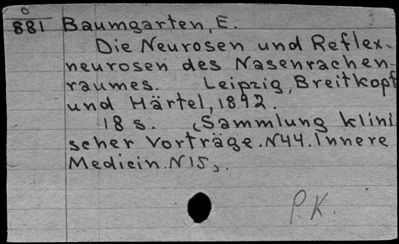 O
881 Baumgarten, E.
Die Neurosen und Reflex-
neurosen des Nasenrachen-
raumes. Leipzig, Breitkopf
und Härtel, 1892.
18 s. (Sammlung klini
scher Vorträge. N44. Innere
Medicin. N15).
P.K.